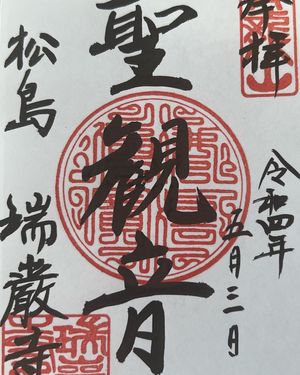 奉拝
令和四年
五月三日
聖観音
松島 瑞巌寺